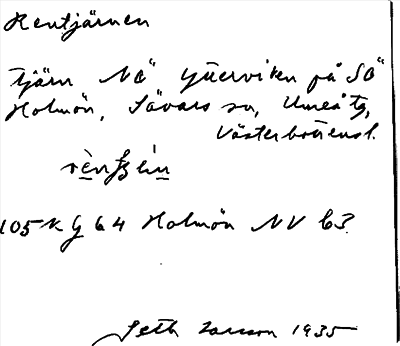 Rentjärnen
tjärn NÖ Ytterviken på SÖ
Holmön, Sävars sn, Umeå tg,
Västerbottensl.
105 K g 64 Holmön NV b3
Seth Larsson 1935